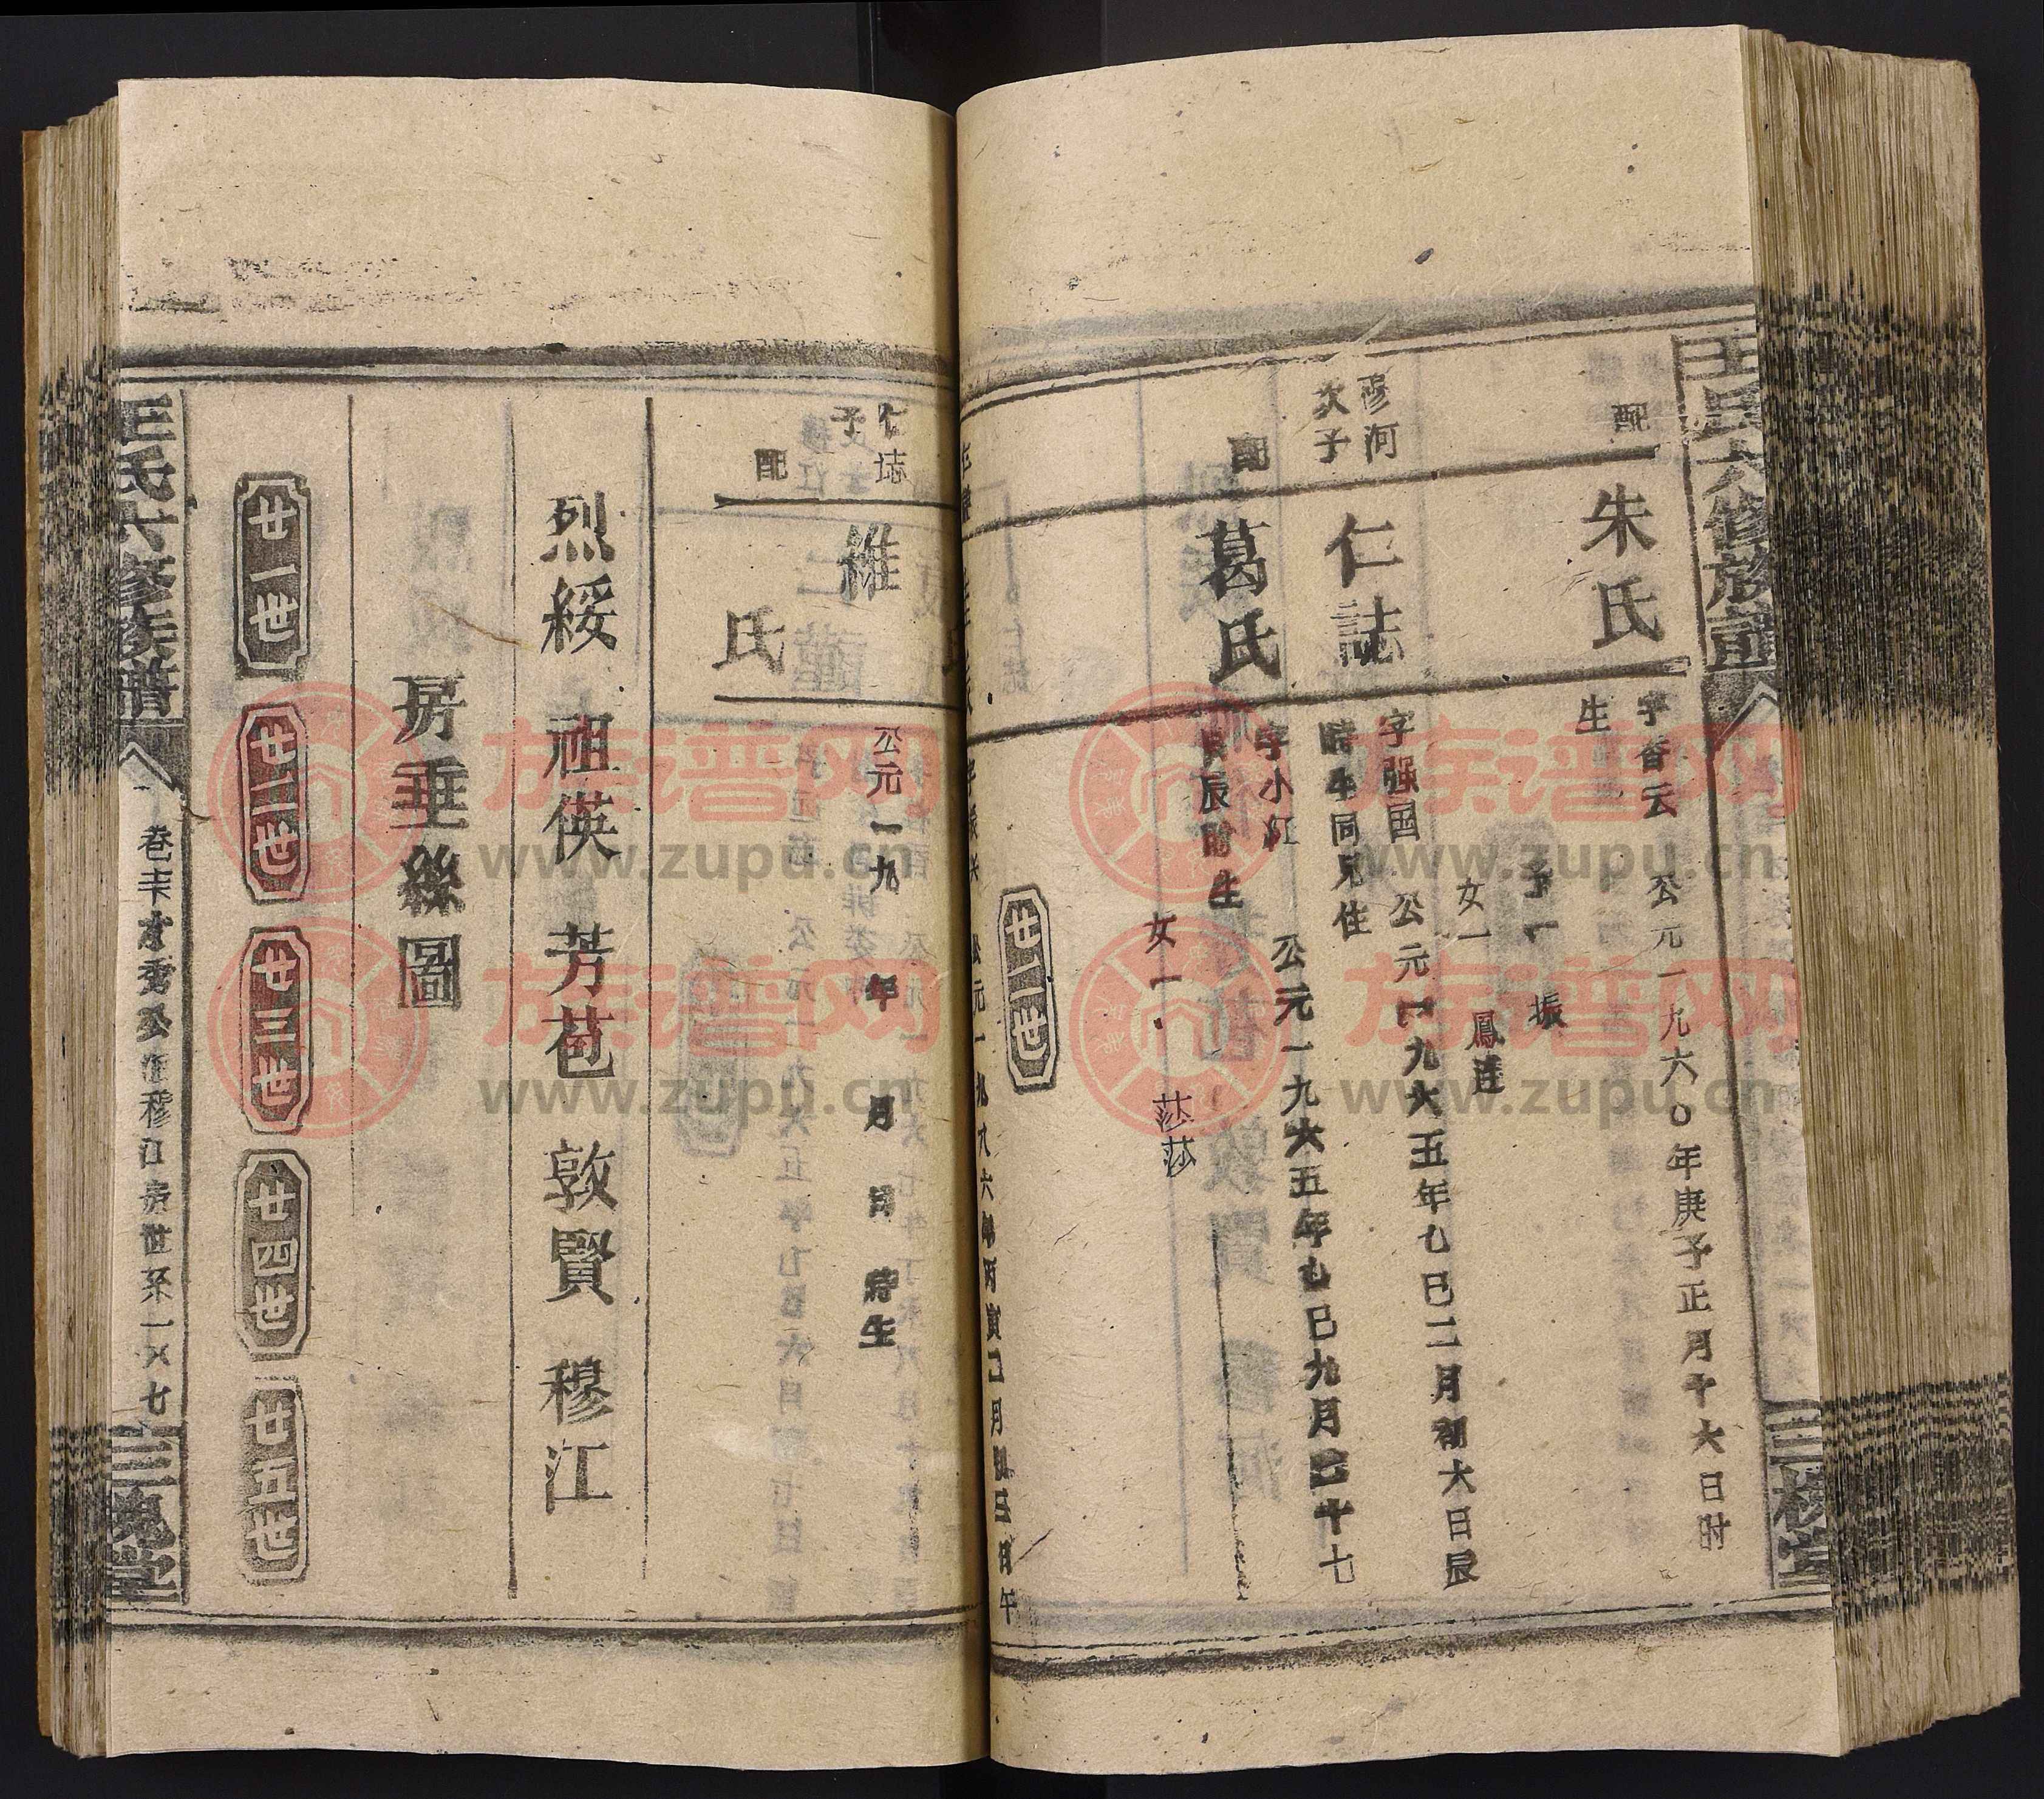 王氏六修族譜
三槐堂
配
朱氏
字香云 公元一九六〇年庚子正月十六日时
生
子一 振
女一 鳳蓮
穆河
次子
仁誌
字强国 公元一九六五年乙巳二月初六日辰
時生同兄住
配
葛氏
字小紅 公元一九六五年乙巳九月二十七
庚辰時生
女一 莎莎
廿二世
仁誌
子
維
公元一九 年 月 日 時生
配
氏
烈綏 祖偀 芳苞 敦賢 穆江
房垂絲圖
廿一世
廿二世
廿三世
廿四世
廿五世
王氏六修族譜
穆江房世系一六七
三槐堂
族谱网
www.zupu.cn
族谱网
www.zupu.cn
族谱网
www.zupu.cn
族谱网
www.zupu.cn